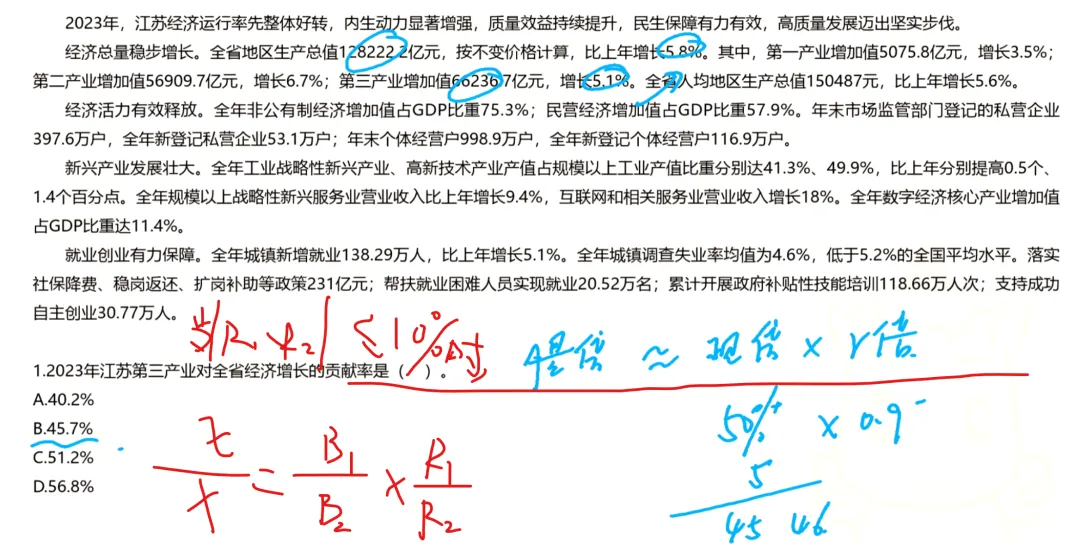 2023年，江苏经济运行率先整体好转，内生动力显著增强，质量效益持续提升，民生保障有力有效，高质量发展迈出坚实步伐。
经济总量稳步增长。全省地区生产总值128222.2亿元，按不变价格计算，比上年增长5.8%。其中，第一产业增加值5075.8亿元，增长3.5%；
第二产业增加值56909.7亿元，增长6.7%；第三产业增加值66236.7亿元，增长5.1%。全省人均地区生产总值150487元，比上年增长5.6%。
经济活力有效释放。全年非公有制经济增加值占GDP比重75.3%；民营经济增加值占GDP比重57.9%。年末市场监管部门登记的私营企业
397.6万户，全年新登记私营企业53.1万户；年末个体经营户998.9万户，全年新登记个体经营户116.9万户。
新兴产业发展壮大。全年工业战略性新兴产业、高新技术产业产值占规模以上工业产值比重分别达41.3%、49.9%，比上年分别提高0.5个、
1.4个百分点。全年规模以上战略性新兴服务业营业收入比上年增长9.4%，互联网和相关服务业营业收入增长18%。全年数字经济核心产业增加值
占GDP比重达11.4%。
就业创业有力保障。全年城镇新增就业138.29万人，比上年增长5.1%。全年城镇调查失业率均值为4.6%，低于5.2%的全国平均水平。落实
社保降费、稳岗返还、扩岗补助等政策231亿元；帮扶就业困难人员实现就业20.52万名；累计开展政府补贴性技能培训118.66万人次；支持成功
自主创业30.77万人。
当|R₁ R₂| ≤10%时 增倍 ≈ 现倍 × r倍
1.2023年江苏第三产业对全省经济增长的贡献率是（ ）。
A.40.2%
B.45.7%
C.51.2%
D.56.8%
= B₁/B₂ × R₁/R₂
50%⁺ × 0.9⁻
5
45 46